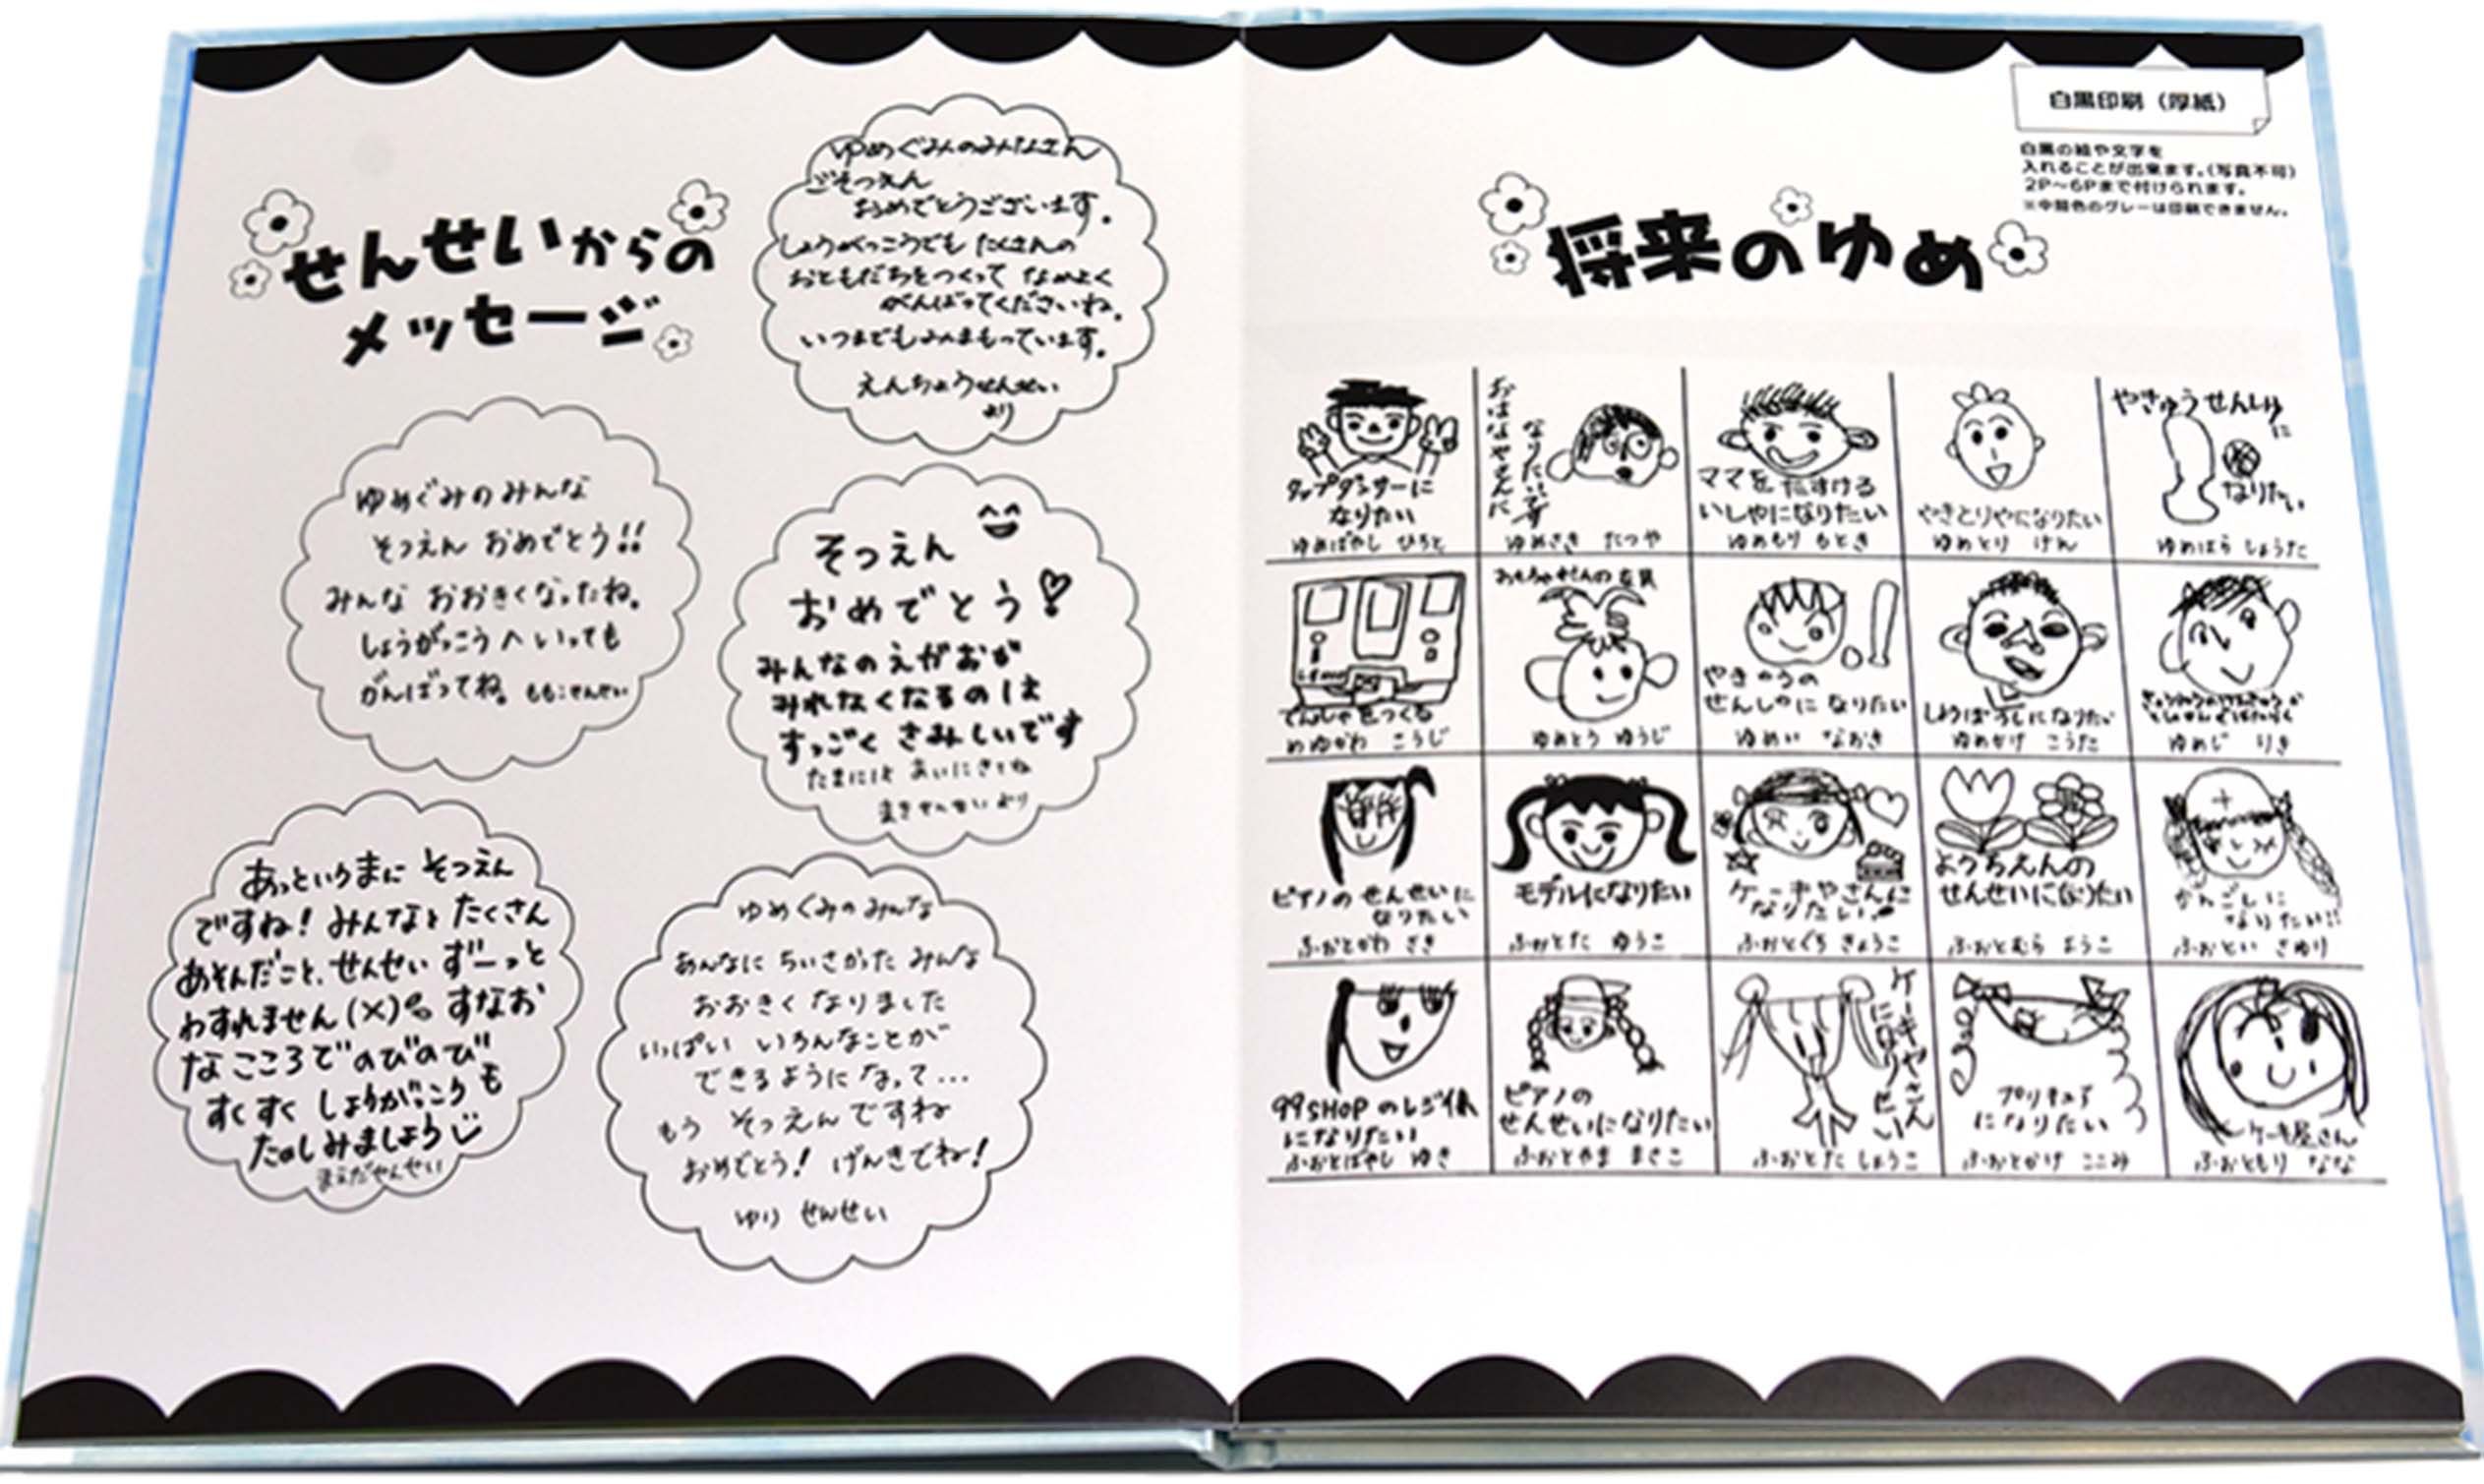 せんせいからの
メッセージ
ゆめぐみのみなさん
ごそつえん
おめでとうございます。
しょうがっこうでも たくさんの
おともだちをつくって なかよく
がんばってくださいね。
いつまでもみまもっています。
えんちょうせんせい
より
ゆめぐみのみんな
そつえん おめでとう!!
みんな おおきくなったね。
しょうがっこうへいっても
がんばってね。 ももこせんせい
そつえん
おめでとう!
みんなのえがおが
みれなくなるのは
すっごく さみしいです
たまには あいにきてね
まきせんせいより
あっというまに そつえん
ですね! みんなと たくさん
あそんだこと、せんせい ずーっと
わすれません(×) すなお
なこころで のびのび
すくすく しょうがっこうも
たのしみましょう
まえだせんせい
ゆめぐみのみんな
あんなに ちいさかった みんな
おおきく なりました
いっぱい いろんなことが
できるようになって…
もう そつえんですね
おめでとう! げんきでね!
ゆり せんせい
白黒印刷(厚紙)
白黒の絵や文字を
入れることが出来ます。(写真不可)
2P〜6Pまで付けられます。
※中間色のグレーは印刷できません。
将来のゆめ
タップダンサーに
なりたい
ゆめばやし ひろと
おはなやさんに
なりたいです
ゆめさき たつや
ママを たすける
いしゃになりたい
ゆめもり もとき
やきとりやになりたい
ゆめとり けん
やきゅうせんしゅに
なりたい
ゆめはら しょうた
でんしゃをつくる
めゆがわ こうじ
おもちゃやさんの店員
ゆめとう ゆうじ
やきゅうの
せんしゅに なりたい
ゆめい なおき
しょうぼうしになりたい
ゆめかげ こうた
ゆめじ りき
ピアノの せんせいに
なりたい
ふおとがわ さき
モデルになりたい
ふおとだ ゆうこ
ケーキやさんに
なりたい
ふおとぐち きょうこ
ようちえんの
せんせいに(な)りたい
ふおとむら ようこ
かんごしに
なりたい!!
ふおとい さゆり
99SHOPのレジ係
になりたい
ふおとばやし ゆき
ピアノの
せんせいになりたい
ふおとやま まさこ
ケーキやさん
になりたい
ふおとだ しょうこ
プリキュア
になりたい
ふおとかげ ここみ
ケーキ屋さん
ふおともり なな